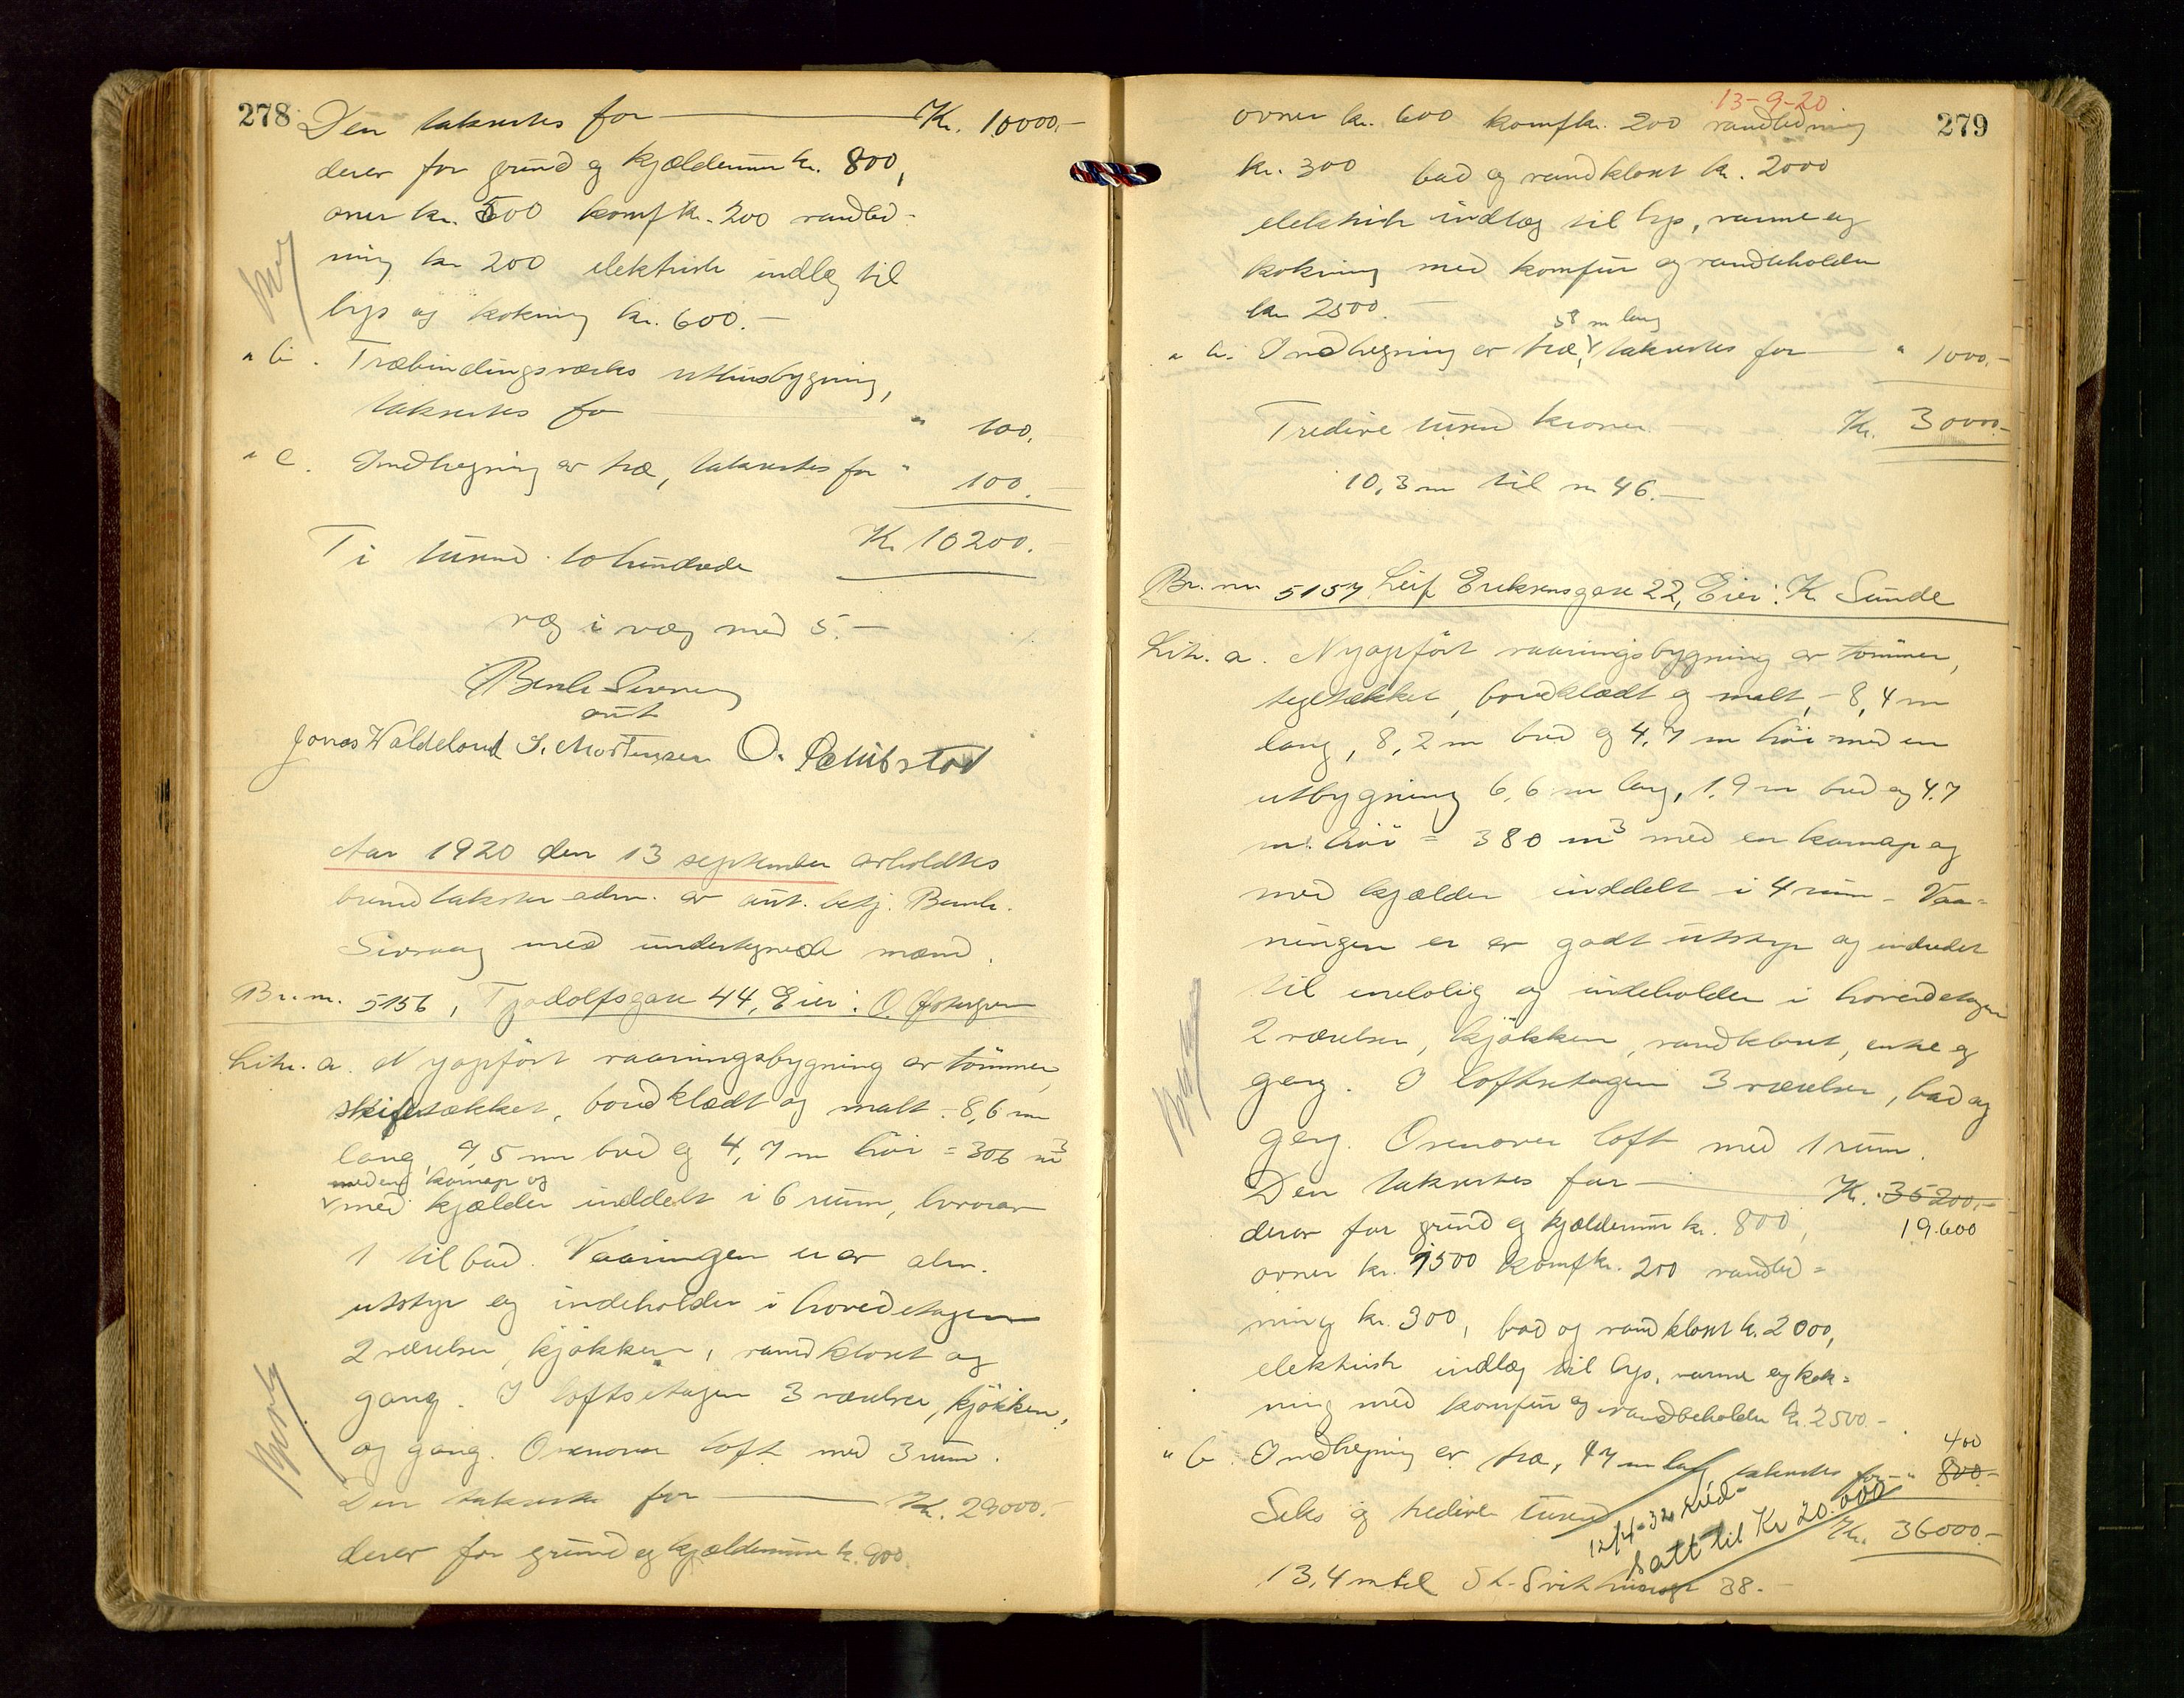 278
Den takseres for Kr. 10000,-
derav for grund og kjælderum kr. 800,
ovner kr. 500 komf kr. 200 vandled-
ning kr 200 elektrisk indlæg til
lys og kokning kr. 600.-
" b. Træbindingsværks uthusbygning,
takseres for " 100.
" c. Indhegning av træ, takseres for " 100.-
Ti tusind tohundrede Kr. 10200.-
væg i væg med 5.-
Bernh Sivraag
aut
Jonas Waldeland S. Mortensen O.
Aar 1920 den 13 september avholdtes
brandtakster adm. av aut. betj. Bernh.
Sivraag med undertegnede mænd.
Br. nr. 5156, Tjodolfsgate 44, Eier: O.
Litr. a. Nyopført vaaningsbygning av tømmer,
skifertækket, bordklædt og malt - 8,6 m
lang, 7,5 m bred og 4,7 m høi = 306 m³
med en karnap og
med kjælder inddelt i 6 rum, hvorav
1 til bad. Vaaningen er av alm.
utstyr og indeholder i hovedetagen
2 værelser, kjøkken, vandklosset og
gang. I loftsetagen 3 værelser, kjøkken,
og gang. Ovenover loft med 3 rum.
Den takseres for Kr. 29000.-
derav for grund og kjælderum kr. 900.
13-9-20
279
ovner kr. 600 komf kr. 200 vandledning
kr. 300 bad og vandklosset kr. 2000
elektrisk indlæg til lys, varme og
kokning med komfur og vandbeholder
kr 2500.
58 m lang
" b. Indhegning av træ, takseres for " 1000.-
Tredive tusind kroner Kr. 30000.-
10,3 m til nr 46.-
Br. nr. 5157 Leif Eriksensgate 22, Eier: K. Sunde
Litr. a. Nyopført vaaningsbygning av tømmer,
tegltækket, bordklædt og malt, - 8,4 m
lang, 8,2 m bred og 4,7 m høi med en
utbygning 6,6 m lang, 1,9 m bred og 4,7
m. høi = 380 m³ med en karnap og
med kjælder inddelt i 4 rum - Vaa-
ningen er av godt utstyr og indredet
til enebolig og indeholder i hovedetagen
2 værelser, kjøkken, vandklosset, entre og
gang. I loftsetagen 3 værelser, bad og
gang. Ovenover loft med 1 rum.
Den takseres for Kr. 35200,-
19.600
derav for grund og kjælderum kr. 800,
ovner kr. 1500 komf kr. 200 vandled-
ning kr. 300, bad og vandklosset kr. 2000,
elektrisk indlæg til lys, varme og kok-
ning med komfur og vandbeholder kr. 2500.-
400
" b. Indhegning av træ, 47 m lang, takseres for " 800.-
Seks og tredive tusind Kr. 36000.-
12/4-32 red-
satt til Kr 20.000
13,4 m til St. Svithunsgt 38.-